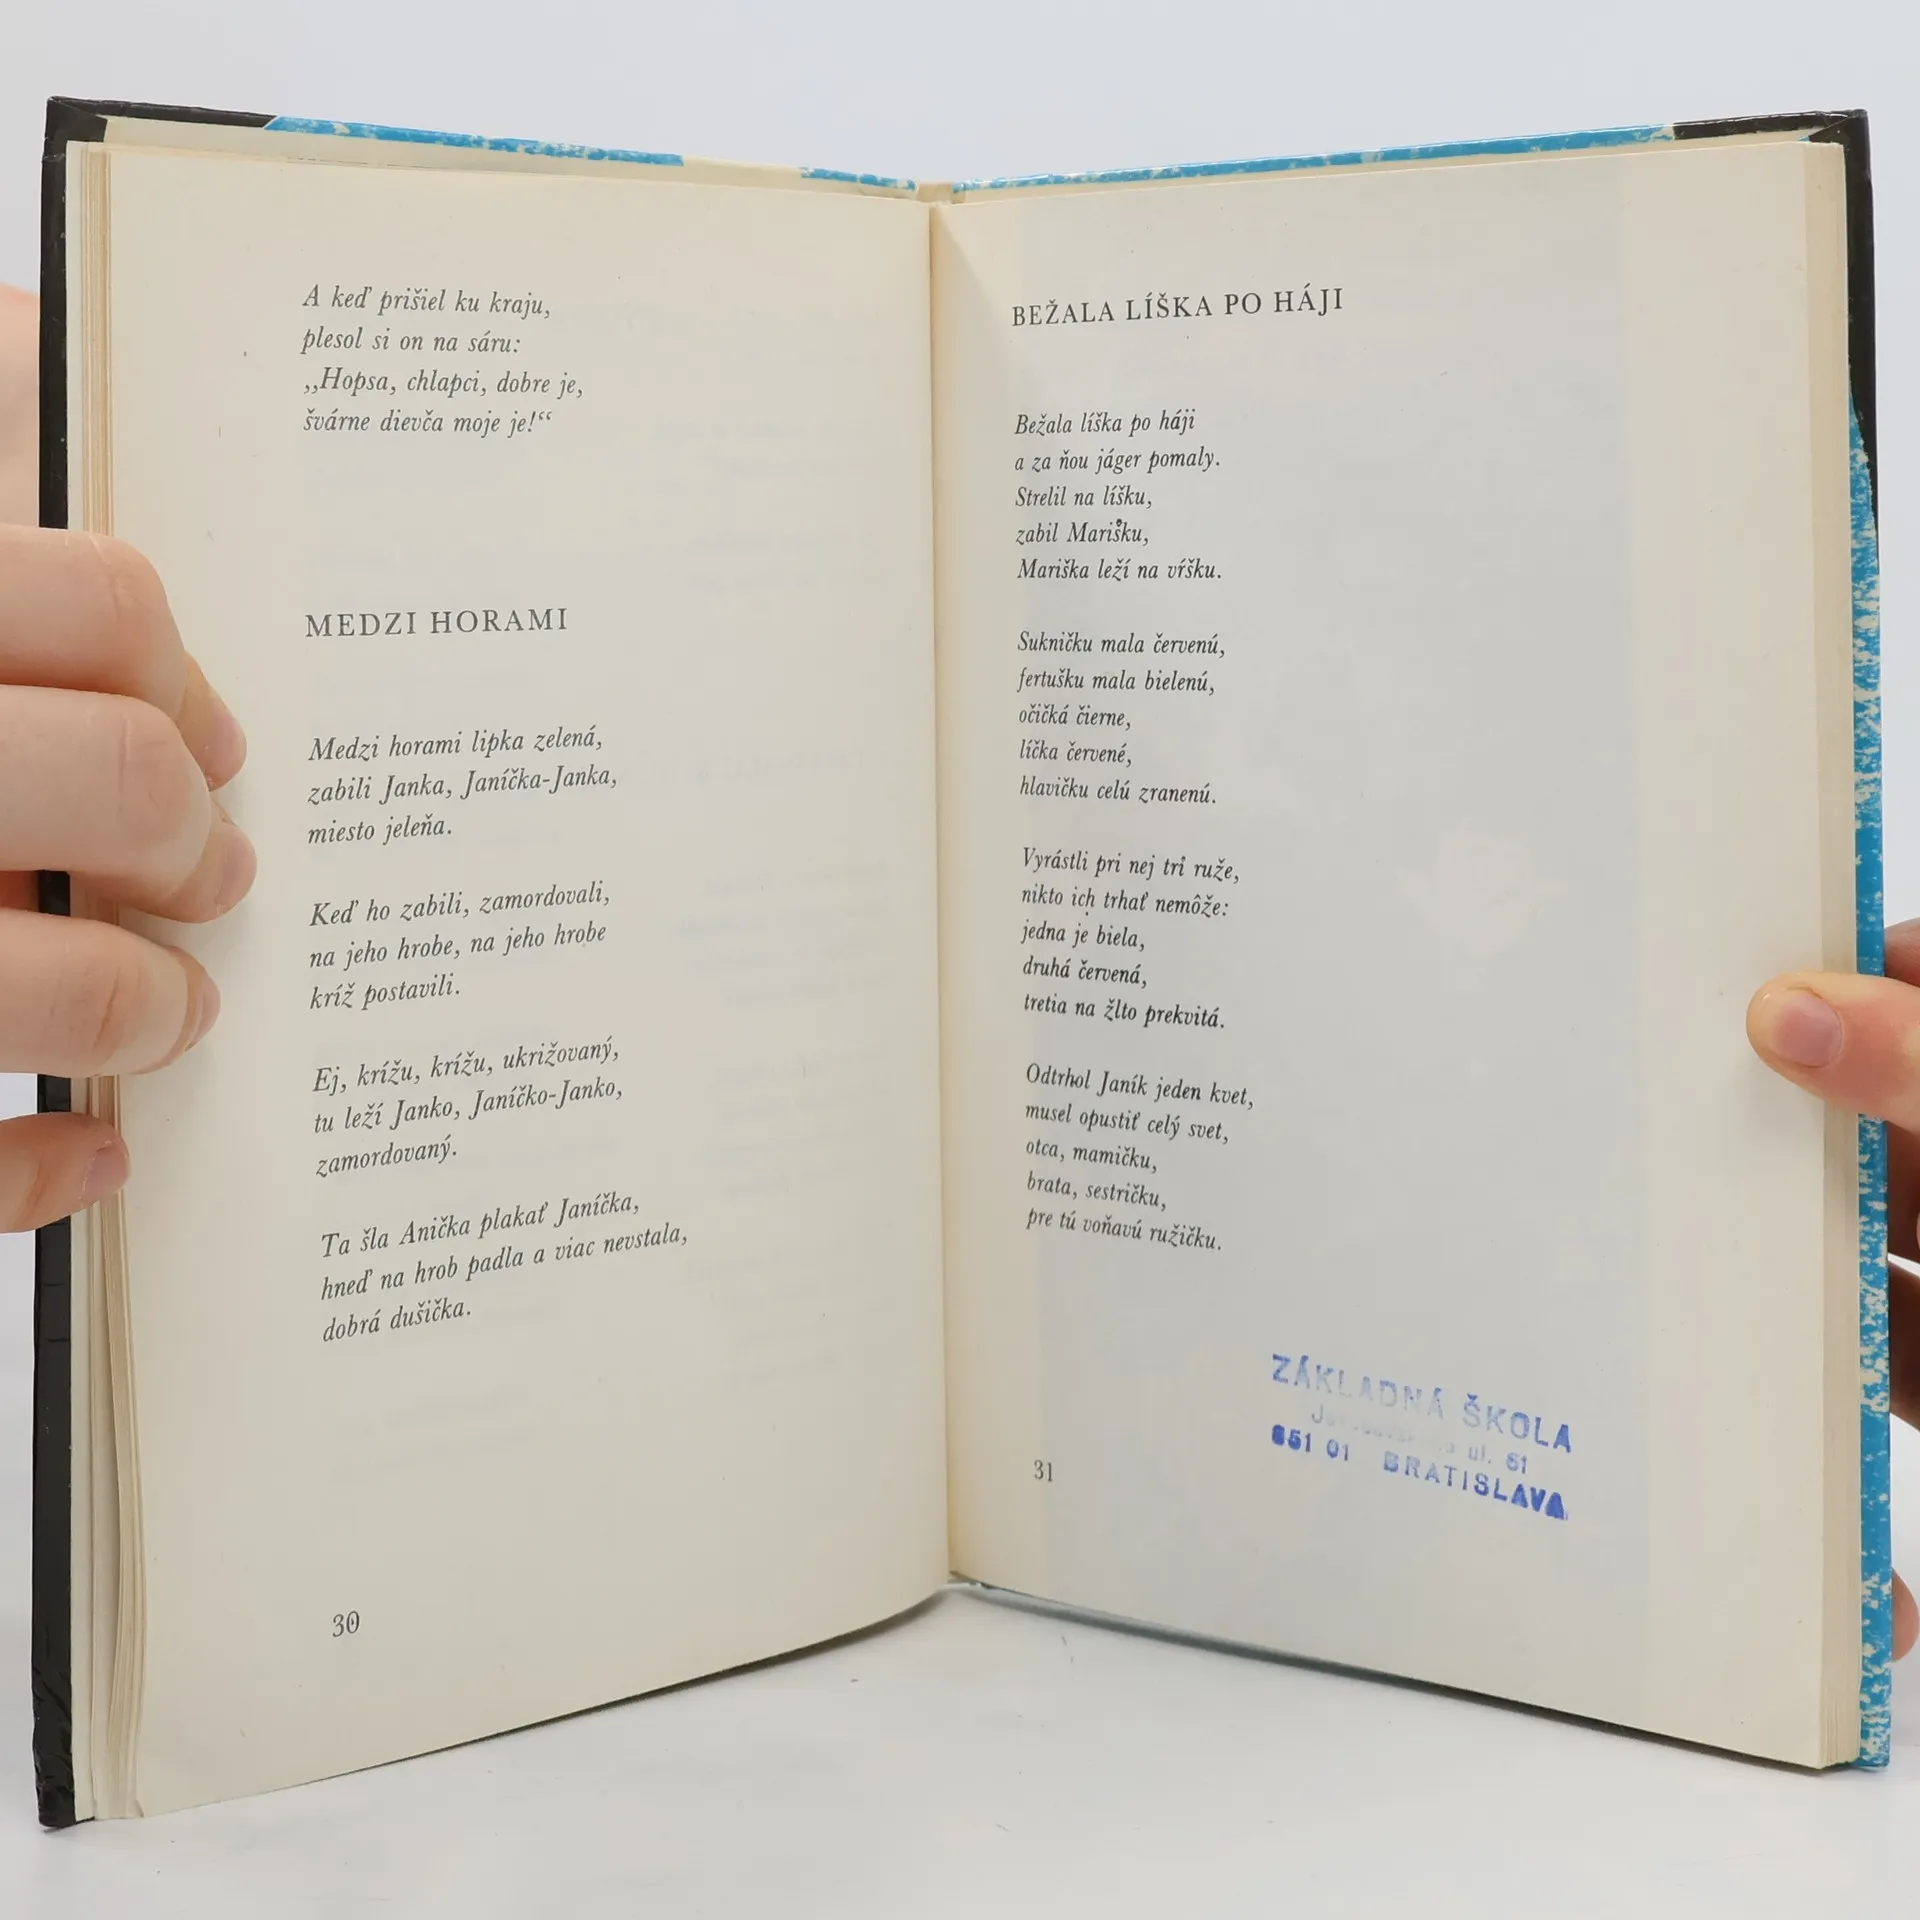 A keď prišiel ku kraju,
plesol si on na sáru:
„Hopsa, chlapci, dobre je,
švárne dievča moje je!“
MEDZI HORAMI
Medzi horami lipka zelená,
zabili Janka, Janíčka-Janka,
miesto jeleňa.
Keď ho zabili, zamordovali,
na jeho hrobe, na jeho hrobe
kríž postavili.
Ej, krížu, krížu, ukrižovaný,
tu leží Janko, Janíčko-Janko,
zamordovaný.
Ta šla Anička plakať Janíčka,
hneď na hrob padla a viac nevstala,
dobrá dušička.
30
BEŽALA LÍŠKA PO HÁJI
Bežala líška po háji
a za ňou jáger pomaly.
Strelil na líšku,
zabil Marišku,
Mariška leží na vŕšku.
Sukničku mala červenú,
fertušku mala bielenú,
očičká čierne,
líčka červené,
hlavičku celú zranenú.
Vyrástli pri nej tri ruže,
nikto ich trhať nemôže:
jedna je biela,
druhá červená,
tretia na žlto prekvitá.
Odtrhol Janík jeden kvet,
musel opustiť celý svet,
otca, mamičku,
brata, sestričku,
pre tú voňavú ružičku.
31
ZÁKLADNÁ ŠKOLA
ul. 61
851 01 BRATISLAVA